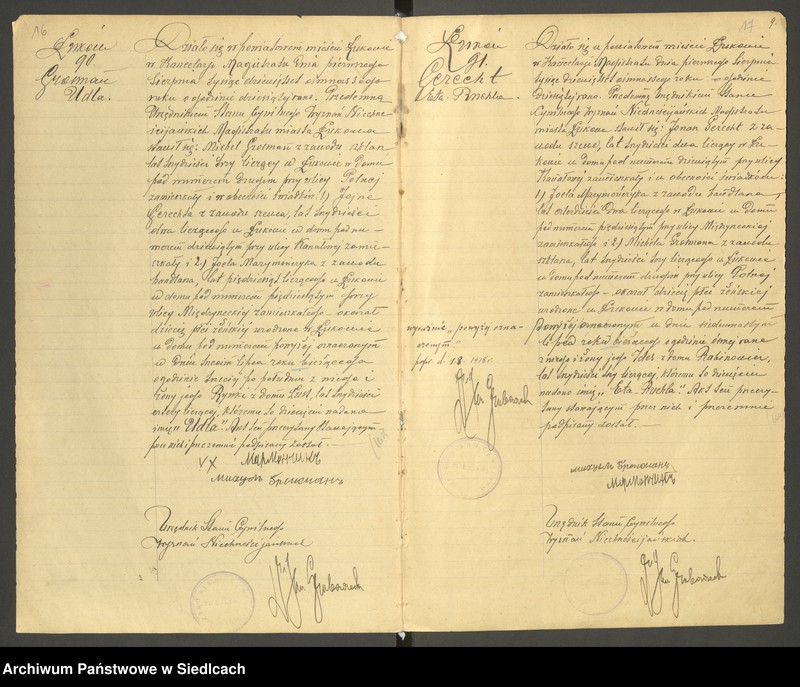 16
Łuków
90.
Grosman
Udla.
Działo się w powiatowem mieście Łukowie
w Kancelarji Magistratu dnia pierwszego
Sierpnia tysiąc dziewięćset osiemnastego
roku o godzinie dziesiątej rano. Przedemną
Urzędnikiem Stanu Cywilnego Wyznań Niechrze-
ścijańskich Magistratu miasta Łukowa
stawił się: Michel Grosman z zawodu
lat trzydzieści trzy liczący w Łukowie w domu
pod numerem drugim przy ulicy
zamieszkały i w obecności świadków: 1)
Gerechta z zawodu szewca, lat trzydzieści
dwa liczącego w Łukowie w domu pod nu-
merem dziewiątym przy ulicy Kanałowej zamie-
szkały i 2) Joela Marymończyka z zawodu
handlarza, lat pięćdziesiąt liczącego w Łukowie
w domu pod numerem pięćdziesiątym przy
ulicy Międzyrzeckiej zamieszkałego - okazał
dziecię płci żeńskiej urodzone w Łukowie
w domu pod numerem powyżej oznaczonym
w dniu lipca roku bieżącego
o godzinie trzeciej po południu z niego i
żony jego z domu lat trzydzieści
liczącej, któremu to dziecięciu nadano
imię „Udla". Akt ten przeczytany stawającym
przez nich i przezemnie podpisany został.
Urzędnik Stanu Cywilnego
Wyznań Niechrześcijańskich
17
9.
Łuków
91.
Gerecht
Ruchla.
Działo się w powiatowem mieście Łukowie
w Kancelarji Magistratu dnia pierwszego Sierpnia
tysiąc dziewięćset osiemnastego roku o godzinie
dziesiątej rano. Przedemną Urzędnikiem Stanu
Cywilnego Wyznań Niechrześcijańskich Magistratu
miasta Łukowa stawił się: Gerecht z za-
wodu szewc, lat trzydzieści dwa liczący w Łu-
kowie w domu pod numerem dziewiątym przy ulicy
Kanałowej zamieszkały i w obecności świadków:
1) Joela Marymończyka z zawodu handlarza,
lat liczącego w Łukowie w domu
pod numerem pięćdziesiątym przy ulicy Międzyrzeckiej
zamieszkałego i 2) Michela Grosmana z zawodu
lat trzydzieści trzy liczącego w Łukowie
w domu pod numerem drugim przy ulicy
zamieszkałego - okazał dziecię płci żeńskiej
urodzone w Łukowie w domu pod numerem
powyżej oznaczonym w dniu siedemnastym
lipca roku bieżącego o godzinie ósmej rano
z niego i żony jego z domu Rabinowicz,
lat trzydzieści trzy liczącej, któremu to dziecięciu
nadano imię „Eta Ruchla". Akt ten przeczy-
tany stawającym przez nich i przezemnie
podpisany został.
wyrażenie „powyżej ozna-
czonym"
Urzędnik Stanu Cywilnego
Wyznań Niechrześcijańskich.
Archiwum Państwowe w Siedlcach